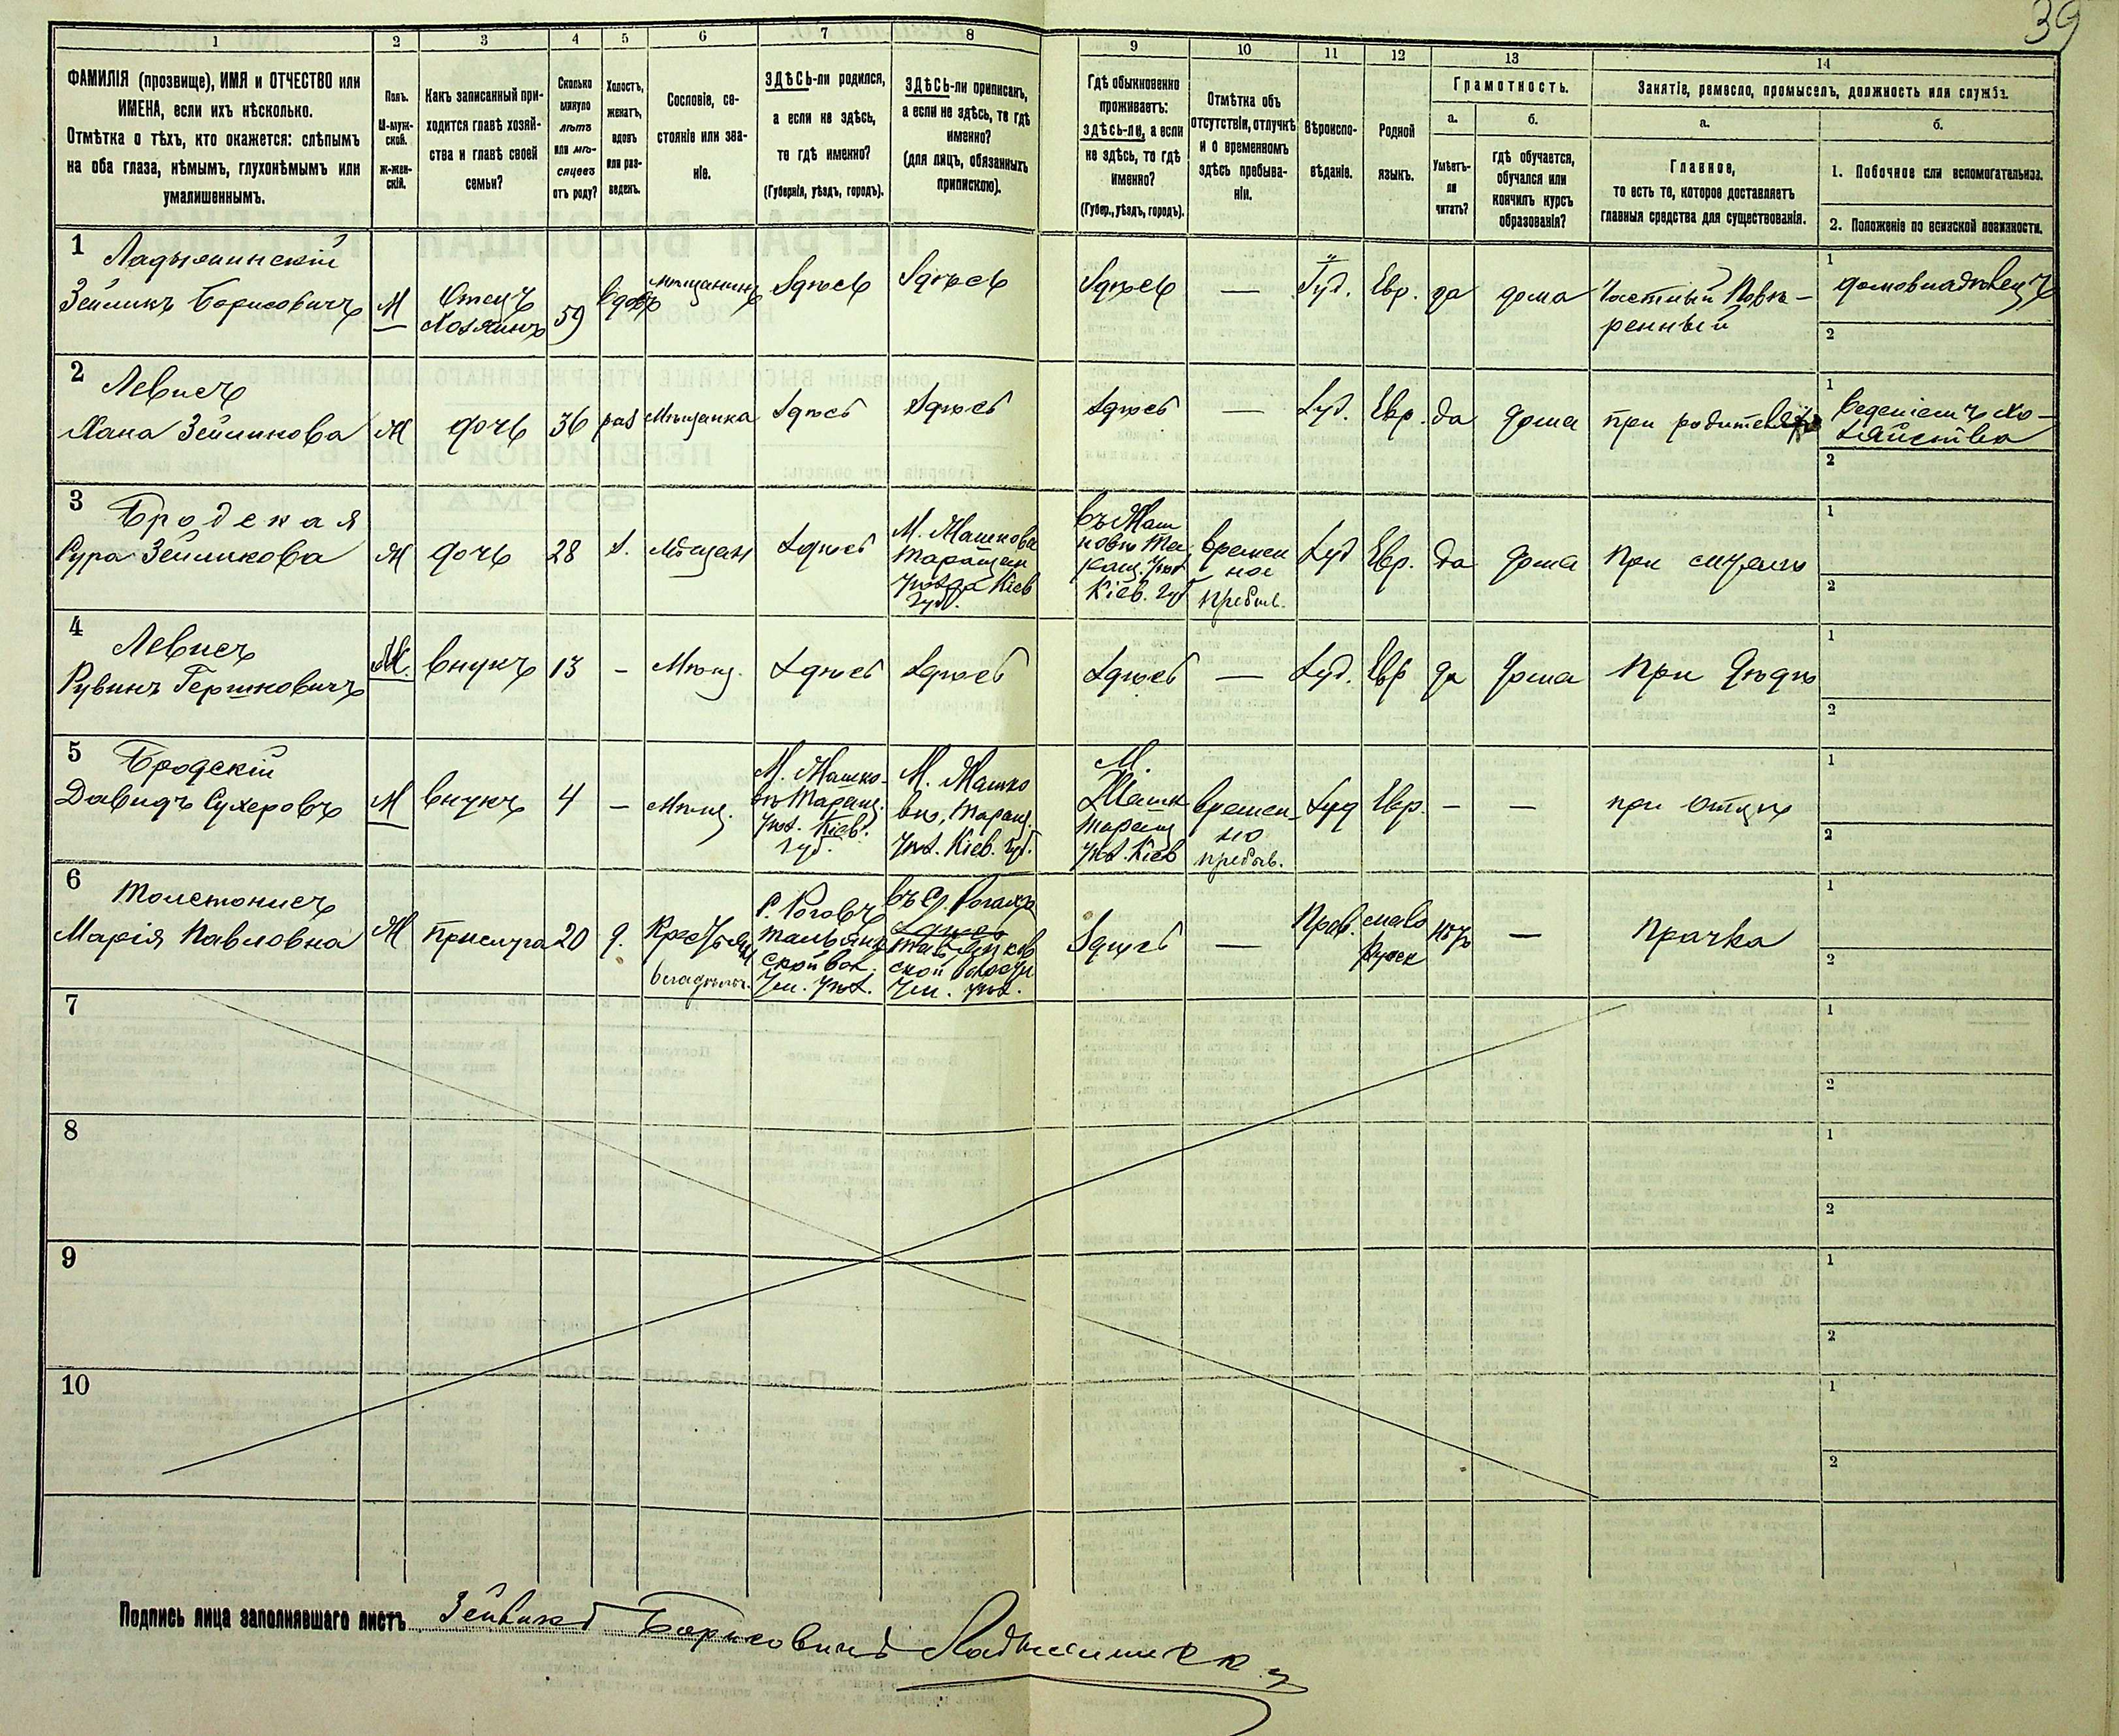 39
1 2 3 4 5 6 7 8 9 10 11 12 13 14
ФАМИЛІЯ (прозвище), ИМЯ и ОТЧЕСТВО или
ИМЕНА, если ихъ нѣсколько.
Отмѣтка о тѣхъ, кто окажется: слѣпымъ
на оба глаза, нѣмымъ, глухонѣмымъ или
умалишеннымъ.
Полъ.
М-муж-
ской.
Ж-жен-
скій.
Какъ записанный при-
ходится главѣ хозяй-
ства и главѣ своей
семьи?
Сколько
минуло
лѣтъ
или мѣ-
сяцевъ
отъ роду?
Холостъ,
женатъ,
вдовъ
или раз-
веденъ.
Сословіе, со-
стояніе или зва-
ніе.
ЗДѢСЬ-ли родился,
а если не здѣсь,
то гдѣ именно?
(Губернія, уѣздъ, городъ).
ЗДѢСЬ-ли приписанъ,
а если не здѣсь, то гдѣ
именно?
(для лицъ, обязанныхъ
припискою).
Гдѣ обыкновенно
проживаетъ:
здѣсь-ли, а если
не здѣсь, то гдѣ
именно?
(Губер., уѣздъ, городъ).
Отмѣтка объ
отсутствіи, отлучкѣ
и о временномъ
здѣсь пребыва-
ніи.
Вѣроиспо-
вѣданіе.
Родной
языкъ.
Грамотность.
а.
Умѣетъ-
ли
читать?
б.
гдѣ обучается,
обучался или
кончилъ курсъ
образованія?
Занятіе, ремесло, промыселъ, должность или служба.
а.
Главное,
то есть то, которое доставляетъ
главныя средства для существованія.
б.
1. Побочное или вспомогательное.
2. Положеніе по воинской повинности.
1
Ладыжинскій
Зейликъ Борисовичъ
М
Отецъ
Хозяинъ
59
вдовъ
мѣщанинъ
Здѣсь
Здѣсь
Здѣсь
—
Іуд.
Евр.
да
дома
Частный Повѣ-
ренный
1
домовладѣлецъ
2
2
Левисъ
Хана Зейликова
Ж
дочь
36
раз
Мѣщанка
Здѣсь
Здѣсь
Здѣсь
—
Іуд.
Евр.
да
дома
при родителяхъ
1
веденіемъ хо-
зяйства
2
3
Бродская
Сура Зейликова
Ж
дочь
28
З.
Мѣщан
Здѣсь
М. Жашкова
Таращан
уѣзда Кіев
губ.
въ Жаш
ковѣ Та
ращ. уѣз
Кіев. губ
времен
ное
пребыв.
Іуд
Евр.
да
дома
при мужѣ
1
2
4
Левисъ
Рувинъ Гершковичъ
М.
внукъ
13
–
Мѣщ.
Здѣсь
Здѣсь
Здѣсь
—
Іуд.
Евр
да
дома
При дѣдѣ
1
2
5
Бродскій
Давидъ Сухеровъ
М
внукъ
4
–
Мѣщ.
М. Жашко-
вѣ Таращ.
уѣз. Кіев.
губ.
М. Жашко
вѣ, Таращ.
уѣз. Кіев. губ.
М.
Жашк
Таращ
уѣз. Кіев
времен-
но
пребыв.
Іуд
Евр.
–
—
при отцѣ
1
2
6
Марія Павловна
Ж
прислуга
20
д.
Здѣсь
—
Прав.
русск
нѣтъ
—
Прачка
1
2
7
1
2
8
1
2
9
1
2
10
1
2
Подпись лица заполнявшаго листъ Зейликъ Борисовичъ Ладыжинскі